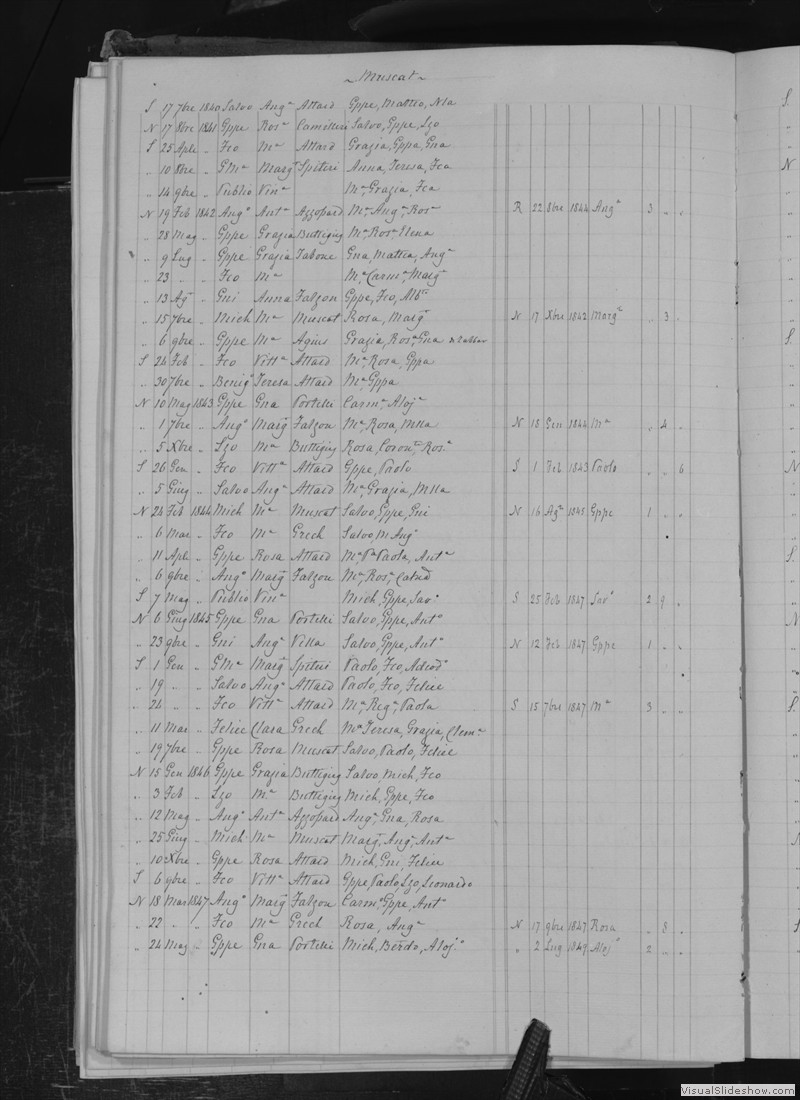 ~ Muscat ~
S 17 7bre 1840 Salvo Angª Attard Gppe, Matteo, Nla
N 17 8bre 1841 Gppe Rosª Camilleri Salvo, Gppe, Lzo
S 25 Aple „ Fco Mª Attard Grazia, Gppa, Gna
„ 10 8bre „ GMª Marg Spiteri Anna, Teresa, Fca
„ 14 9bre „ Publio Vinª Mª, Grazia, Fca
N 19 Feb 1842 Angº Antª Azzopard Mª, Angª, Rosª R 22 8bre 1844 Angª 3 „ „
„ 28 Mag „ Gppe Grazia Buttigieg Mª, Rosª, Elena
„ 9 Lug „ Gppe Grazia Tabone Gna, Mattea, Angª
„ 23 „ „ Fco Mª Mª, Carmª, Marg
„ 13 Ag „ Gni Anna Falzon Gppe, Fco,
„ 15 7bre „ Mich Mª Muscat Rosa, Marg N 17 Xbre 1842 Margª „ 3 „
„ 6 9bre „ Gppe Mª Agius Grazia, Rosª, Gna
S 24 Feb „ Fco Vittª Attard Mª, Rosa, Gppa
„ 30 7bre „ Benigº Teresa Attard Mª, Gppa
N 10 Mag 1843 Gppe Gna Portelli Carmª, Alojª
„ 1 7bre „ Angº Marg Falzon Mª, Rosa, Mlla N 18 Gen 1844 Mª „ 4 „
„ 5 Xbre „ Lzo Mª Buttigieg Rosa, Coronª, Rosª
S 26 Gen „ Fco Vittª Attard Gppe, Paolo S 1 Feb 1843 Paolo „ „ 6
„ 5 Giug „ Salvo Angª Attard Mª, Grazia, Mlla
N 24 Feb 1844 Mich Mª Muscat Salvo, Gppe, Gni N 16 Agº 1845 Gppe 1 „ „
„ 6 Mar „ Fco Mª Grech Salvo, M Angº
„ 11 Aple „ Gppe Rosa Attard Mª, Paola, Antª
„ 6 9bre „ Angº Marg Falzon Mª, Rosª,
S 7 Mag „ Publio Vinª Mich, Gppe, Savº S 25 Feb 1847 Savº 2 9 „
N 6 Giug 1845 Gppe Gna Portelli Salvo, Gppe, Antº
„ 23 9bre „ Gni Angª Vella Salvo, Gppe, Antº N 12 Feb 1847 Gppe 1 „ „
S 1 Gen „ GMª Marg Spiteri Paolo, Fco,
„ 19 „ „ Salvo Angª Attard Paolo, Fco, Felice
„ 24 „ „ Fco Vittª Attard Mª, Regª, Paola S 15 7bre 1847 Mª 3 „ „
„ 11 Mar „ Felice Clara Grech Mª Teresa, Grazia, Clemª
„ 19 7bre „ Gppe Rosa Muscat Salvo, Paolo, Felice
N 15 Gen 1846 Gppe Grazia Buttigieg Salvo, Mich, Fco
„ 3 Feb „ Lzo Mª Buttigieg Mich, Gppe, Fco
„ 12 Mag „ Angº Antª Azzopard Angª, Gna, Rosa
„ 25 Giug „ Mich Mª Muscat Marg, Angª, Antª
„ 10 Xbre „ Gppe Rosa Attard Mich, Gni, Felice
S 6 9bre „ Fco Vittª Attard Gppe, Paolo, Lzo, Leonardo
N 18 Mar 1847 Angº Marg Falzon Carmº, Gppe, Antº
„ 22 „ „ Fco Mª Grech Rosa, Angª N 17 9bre 1847 Rosa „ 8 „
„ 24 Mag „ Gppe Gna Portelli Mich, Berdo, Alojº „ 2 Lug 1849 Alojº 2 „ „
VisualSlideshow.com